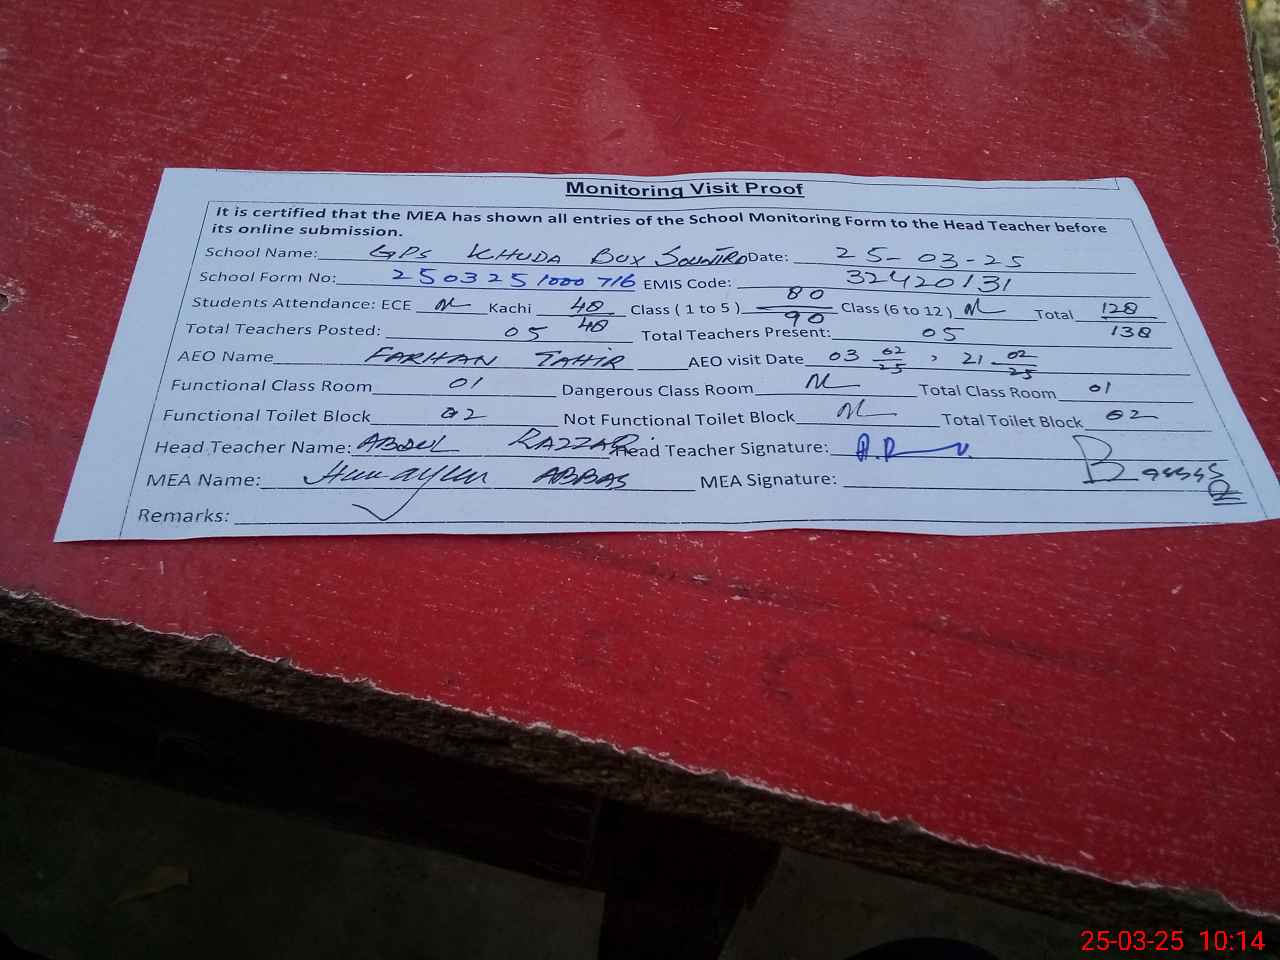 Monitoring Visit Proof
It is certified that the MEA has shown all entries of the School Monitoring Form to the Head Teacher before
its online submission.
School Name: GPS KHUDA BUX Date: 25-03-25
School Form No: 2503251000716 EMIS Code: 32420131
Students Attendance: ECE Nil Kachi 48/48 Class ( 1 to 5 ) 80/90 Class (6 to 12) Nil Total 128/138
Total Teachers Posted: 05 Total Teachers Present: 05
AEO Name FARHAN TAHIR AEO visit Date 03 02/25 , 21 02/25
Functional Class Room 01 Dangerous Class Room Nil Total Class Room 01
Functional Toilet Block 02 Not Functional Toilet Block Nil Total Toilet Block 02
Head Teacher Name: ABDUL RAZZAQ Head Teacher Signature:
MEA Name: Humayun ABBAS MEA Signature:
Remarks:
25-03-25 10:14